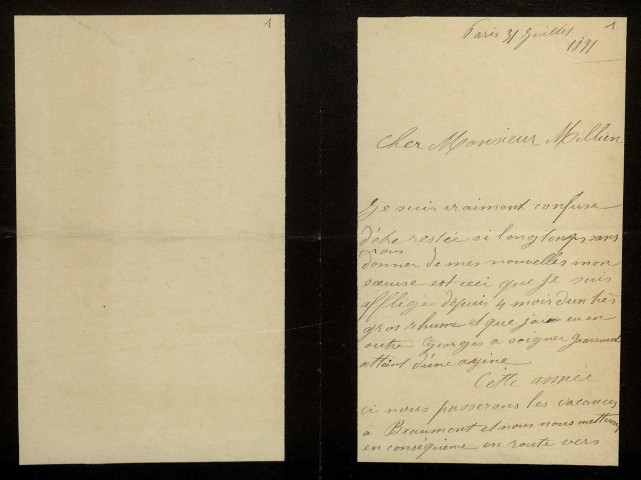 1
1
Paris 31 Juillet
1891
Cher Monsieur Millien
Je suis vraiment confuse
d'être restée si longtemps sans
vous
donner de mes nouvelles mon
excuse est ceci que je suis
affligé depuis 4 mois d'un très
gros rhume et que j'ai eu en
outre Georges a soigner gravement
atteint d'une angine
Cette année
ci nous passerons les vacances
a Beaumont et nous nous mettrons
en conséquence en route vers